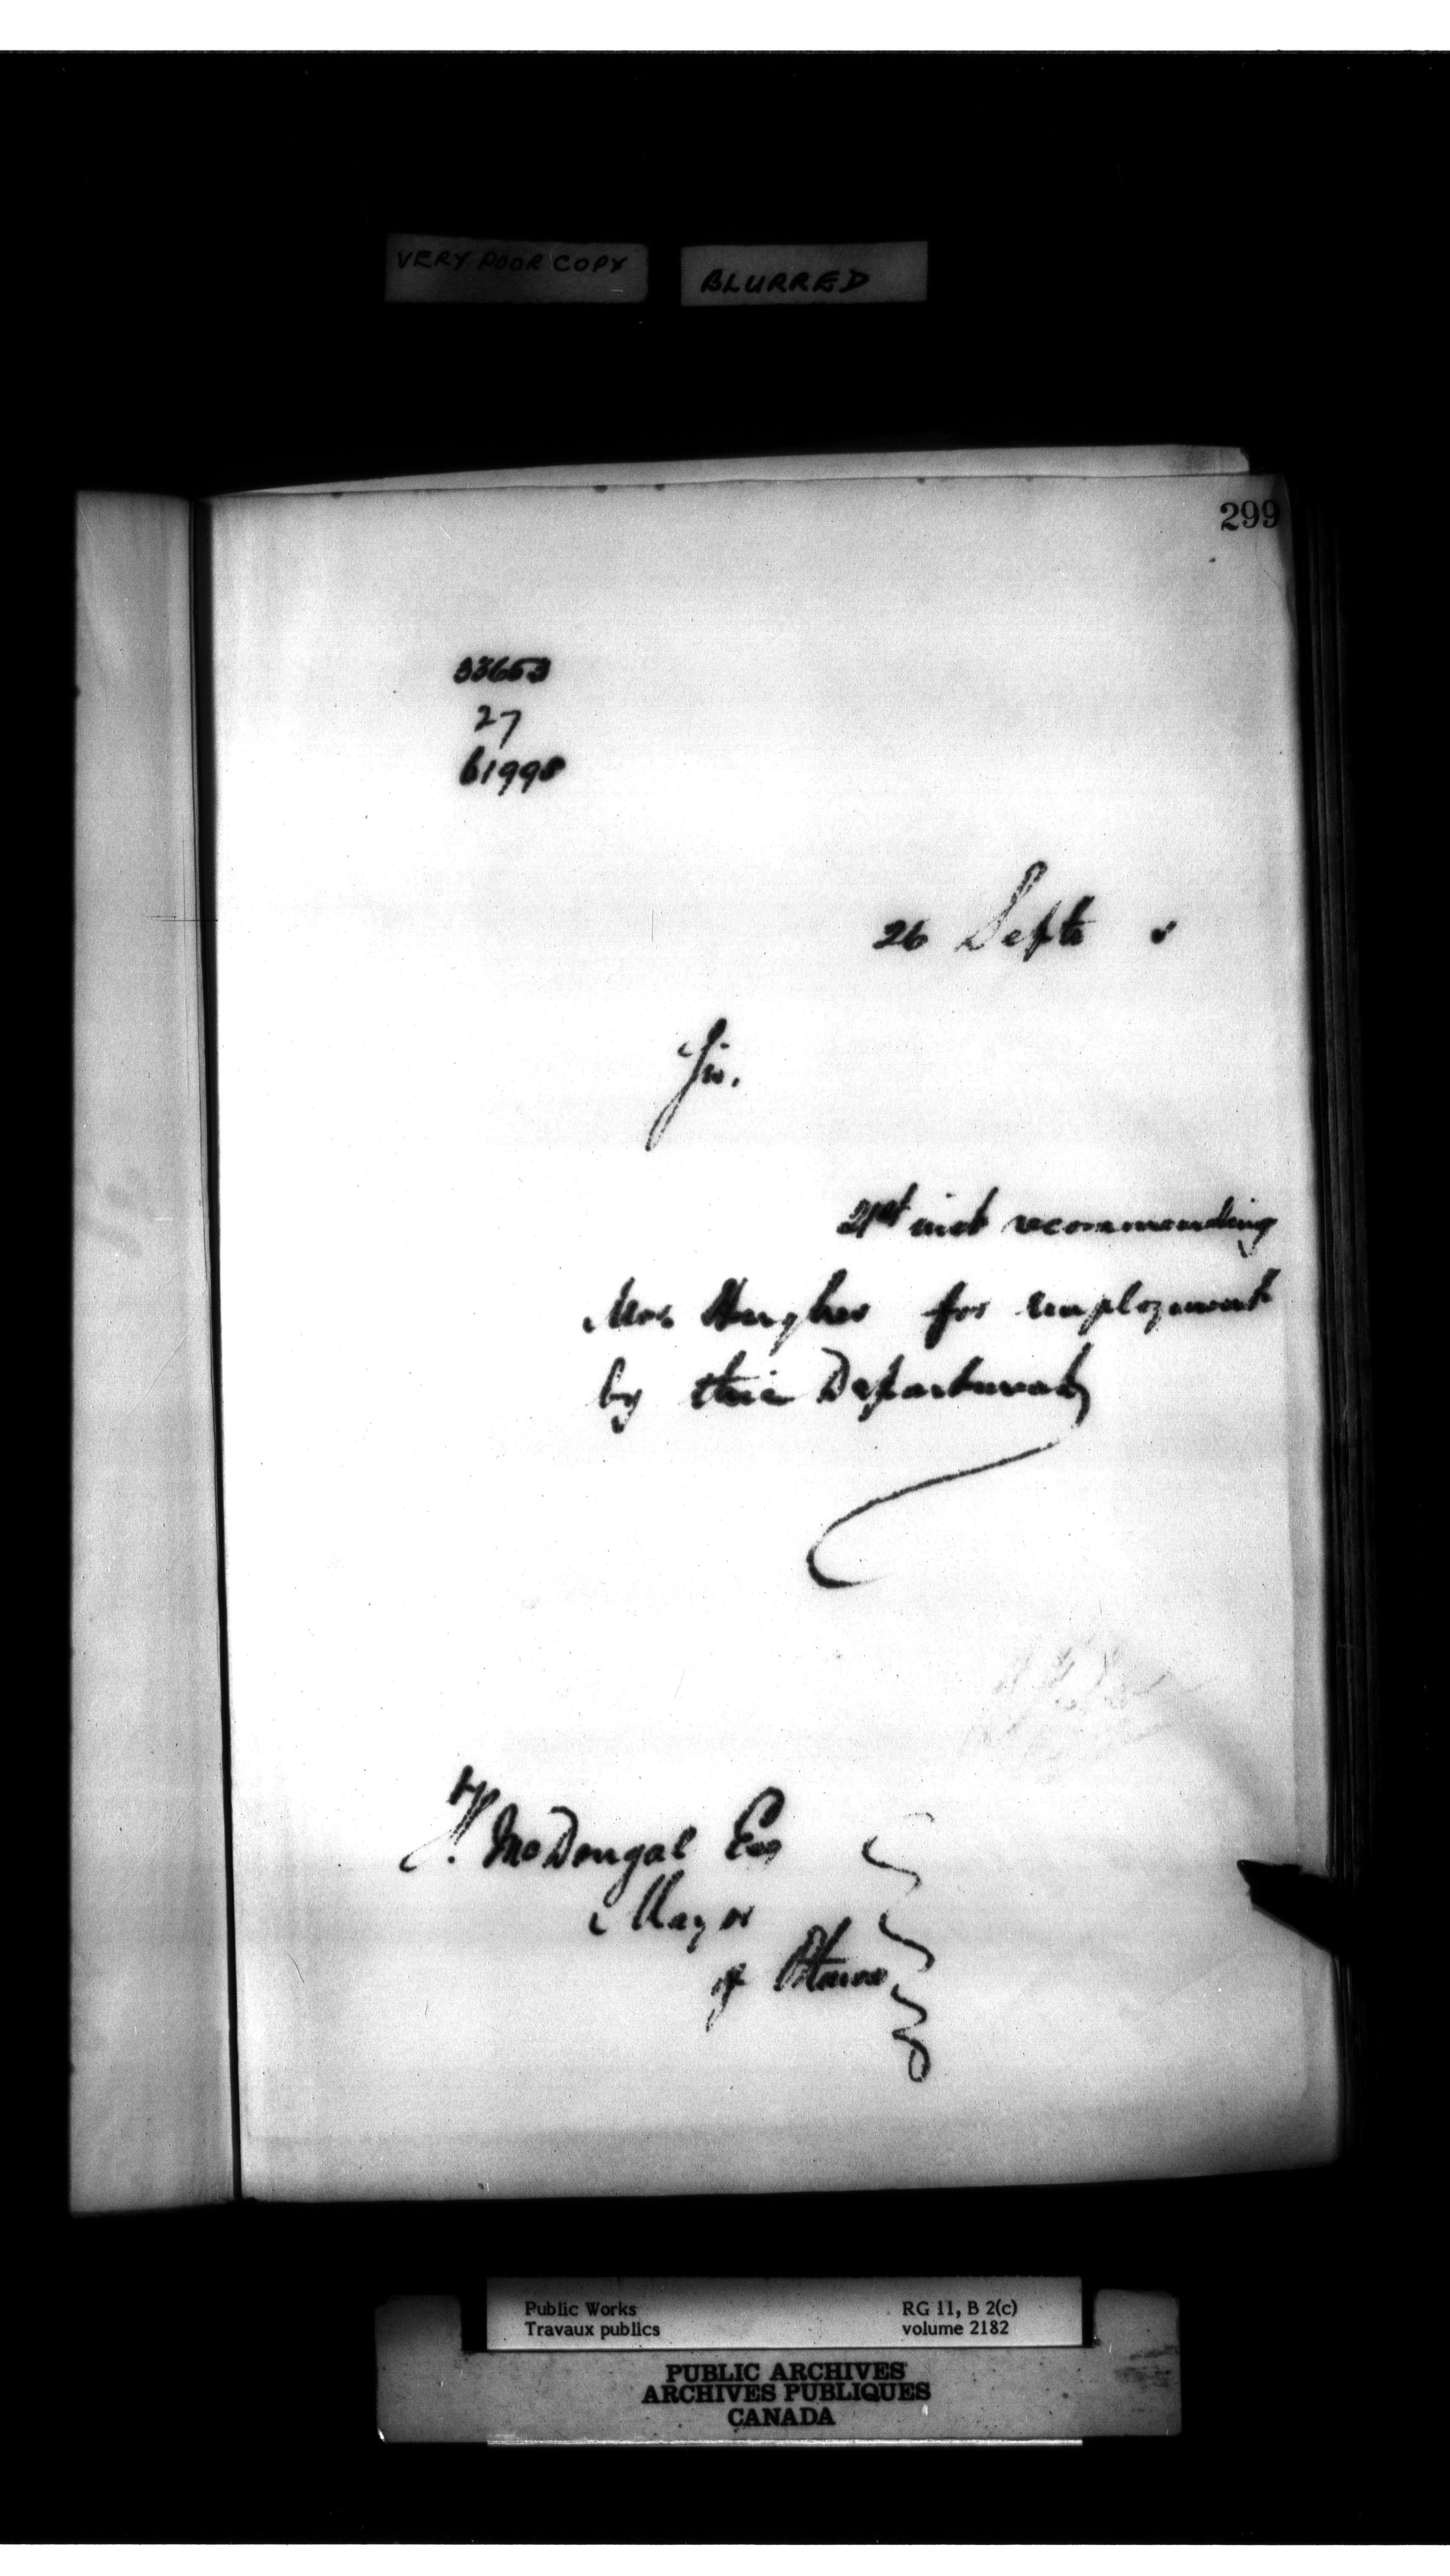 VERY POOR COPY
BLURRED
299
33653
27
61998
26 Septr
Sir,
21st inst recommending
Mrs. Hughes for employment
by this Department
McDougal Esq
Mayor
of Ottawa
Public Works
Travaux publics
RG 11, B 2(c)
volume 2182
PUBLIC ARCHIVES
ARCHIVES PUBLIQUES
CANADA